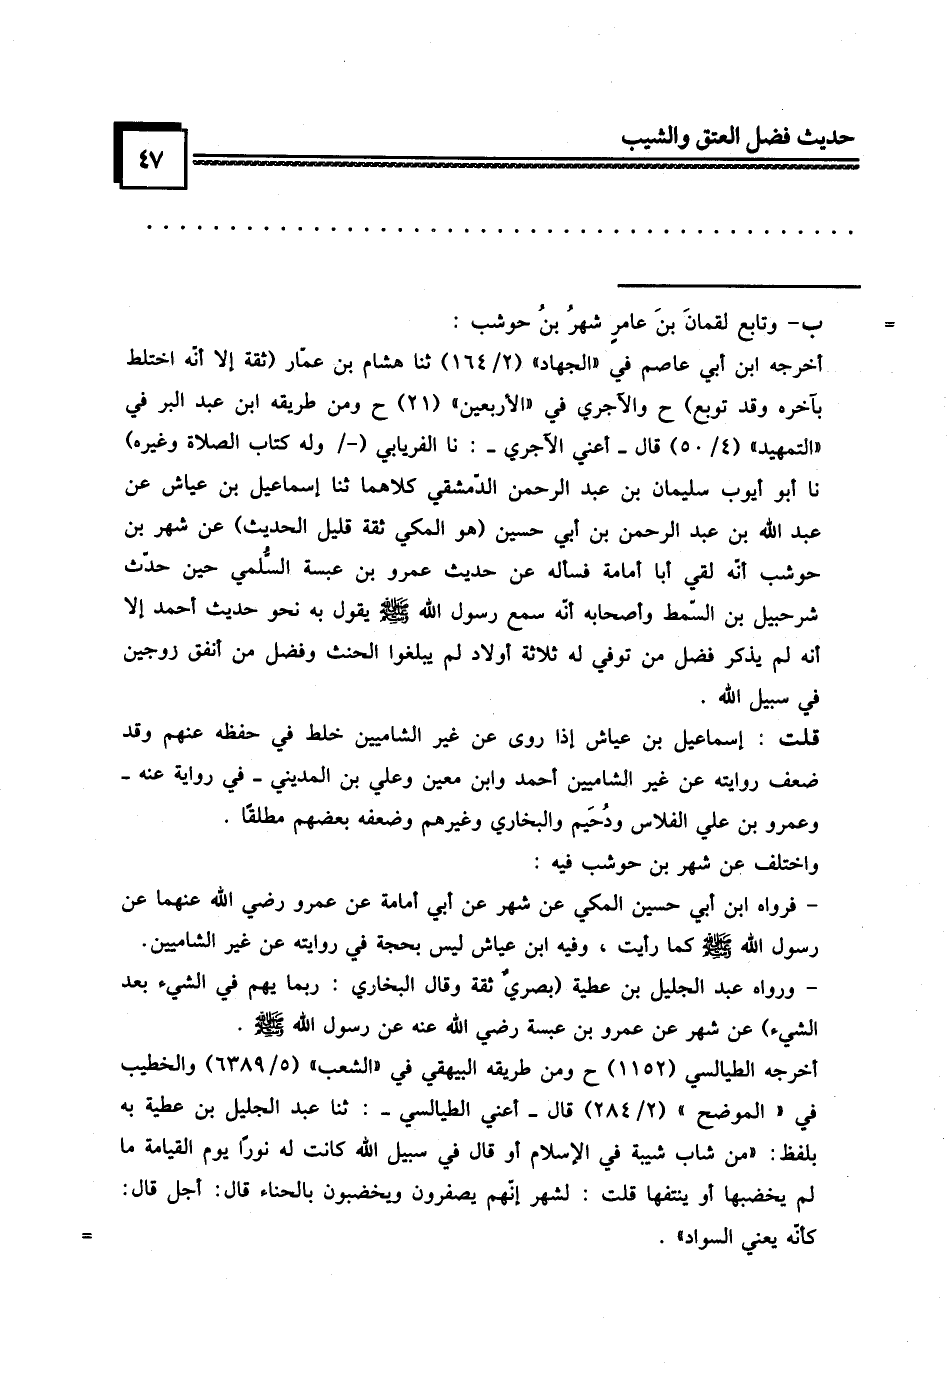 حديث فضل العتق والشيب
٤٧
. . . . . . . . . . . . . . . . . . . . . . . . . . . . . . . . . . . . . . . .
= ب- وتابع لقمانَ بنَ عامرٍ شهرُ بنُ حوشب :
أخرجه ابن أبي عاصم في «الجهاد» (٢/ ١٦٤) ثنا هشام بن عمّار (ثقة إلا أنّه اختلط
بآخره وقد توبع) ح والآجري في «الأربعين» (٢١) ح ومن طريقه ابن عبد البر في
«التمهيد» (٤/ ٥٠) قال ـ أعني الآجري ـ : نا الفريابي (-/ وله كتاب الصلاة وغيره)
نا أبو أيوب سليمان بن عبد الرحمن الدّمشقي كلاهما ثنا إسماعيل بن عياش عن
عبد الله بن عبد الرحمن بن أبي حسين (هو المكي ثقة قليل الحديث) عن شهر بن
حوشب أنّه لقي أبا أمامة فسأله عن حديث عمرو بن عبسة السُّلمي حين حدّث
شرحبيل بن السّمط وأصحابه أنّه سمع رسول الله ﷺ يقول به نحو حديث أحمد إلا
أنه لم يذكر فضل من توفي له ثلاثة أولاد لم يبلغوا الحنث وفضل من أنفق زوجين
في سبيل الله .
قلت : إسماعيل بن عياش إذا روى عن غير الشاميين خلط في حفظه عنهم وقد
ضعف روايته عن غير الشاميين أحمد وابن معين وعلي بن المديني ـ في رواية عنه ـ
وعمرو بن علي الفلاس ودُحَيم والبخاري وغيرهم وضعفه بعضهم مطلقًا .
واختلف عن شهر بن حوشب فيه :
- فرواه ابن أبي حسين المكي عن شهر عن أبي أمامة عن عمرو رضي الله عنهما عن
رسول الله ﷺ كما رأيت ، وفيه ابن عياش ليس بحجة في روايته عن غير الشاميين.
- ورواه عبد الجليل بن عطية (بصريٌ ثقة وقال البخاري : ربما يهم في الشيء بعد
الشيء) عن شهر عن عمرو بن عبسة رضي الله عنه عن رسول الله ﷺ .
أخرجه الطيالسي (١١٥٢) ح ومن طريقه البيهقي في «الشعب» (٥/ ٦٣٨٩) والخطيب
في « الموضح » (٢/ ٢٨٤) قال ـ أعني الطيالسي ـ : ثنا عبد الجليل بن عطية به
بلفظ: «من شاب شيبة في الإسلام أو قال في سبيل الله كانت له نورًا يوم القيامة ما
لم يخضبها أو ينتفها قلت : لشهر إنّهم يصفرون ويخضبون بالحناء قال: أجل قال:
كأنّه يعني السواد» . =